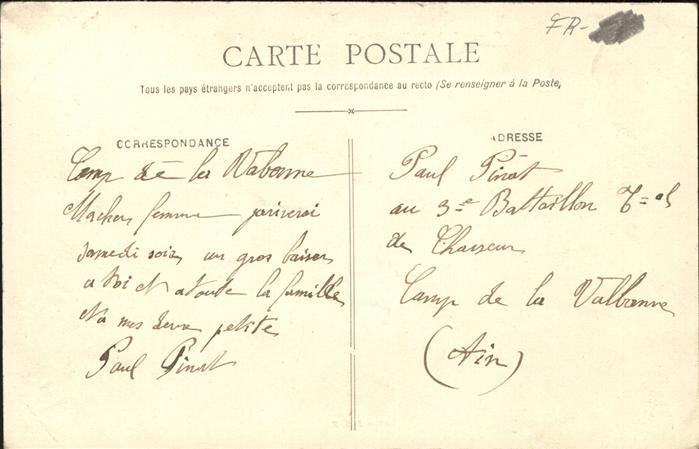 FR-
CARTE POSTALE
Tous les pays étrangers n'acceptent pas la correspondance au recto (Se renseigner à la Poste)
CORRESPONDANCE
Camp de la Valbonne
Ma cher femme jariverai
samedi soir un gros baiser
a toi et a toute la famille
et a mes deux petite
Paul Pinat
ADRESSE
Paul Pinat
au 3=e Battaillon T=al
de Chasseur
Camp de la Valbonne
(Ain)